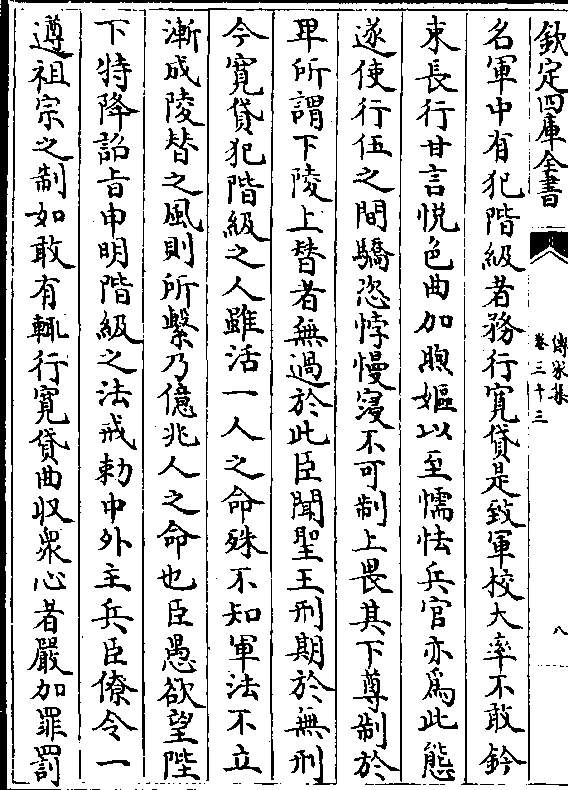 欽定四庫全書
傳家集
卷三十三
八
名軍中有犯階級者務行寬貸是致軍校大率不敢鈐
束長行甘言悅色曲加煦嫗以至懦怯兵官亦爲此態
遂使行伍之間驕恣悖慢寖不可制上畏其下尊制於
卑所謂下陵上替者無過於此臣聞聖王刑期於無刑
今寛貸犯階級之人雖活一人之命殊不知軍法不立
漸成陵替之風則所繫乃億兆人之命也臣愚欲望陛
下特降詔旨申明階級之法戒勅中外主兵臣僚令一
遵祖宗之制如敢有輒行寛貸曲収衆心者嚴加罪罰